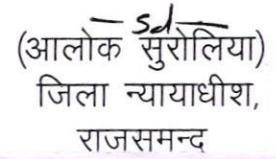 —sd—
(आलोक सुरोलिया)
जिला न्यायाधीश,
राजसमन्द